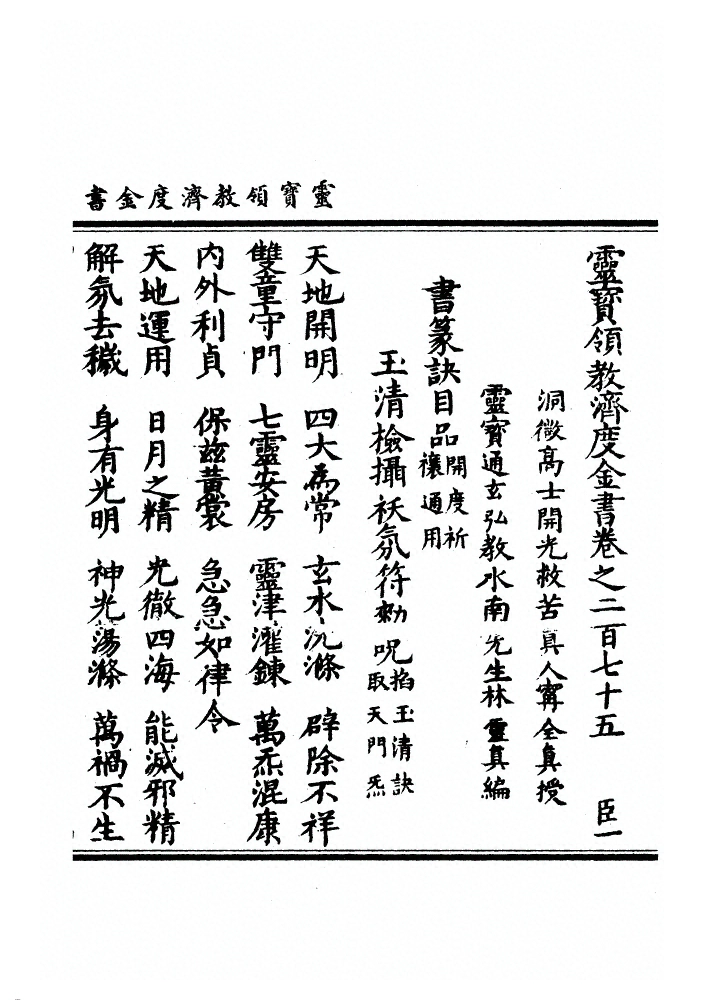 靈寶領教濟度金書
靈寶領教濟度金書卷之二百七十五 臣一
洞微高士開光救苦真人甯全真授
靈寶通玄弘教水南先生林靈真編
書篆訣目品開度祈禳通用
玉清撿攝祅氛符勑呪掐玉清訣取天門炁
天地開明 四大為常 玄水洗滌 辟除不祥
雙童守門 七靈安房 靈津灌鍊 萬炁混康
內外利貞 保茲黃裳 急急如律令
天地運用 日月之精 光徹四海 能滅邪精
解氛去穢 身有光明 神光蕩滌 萬禍不生